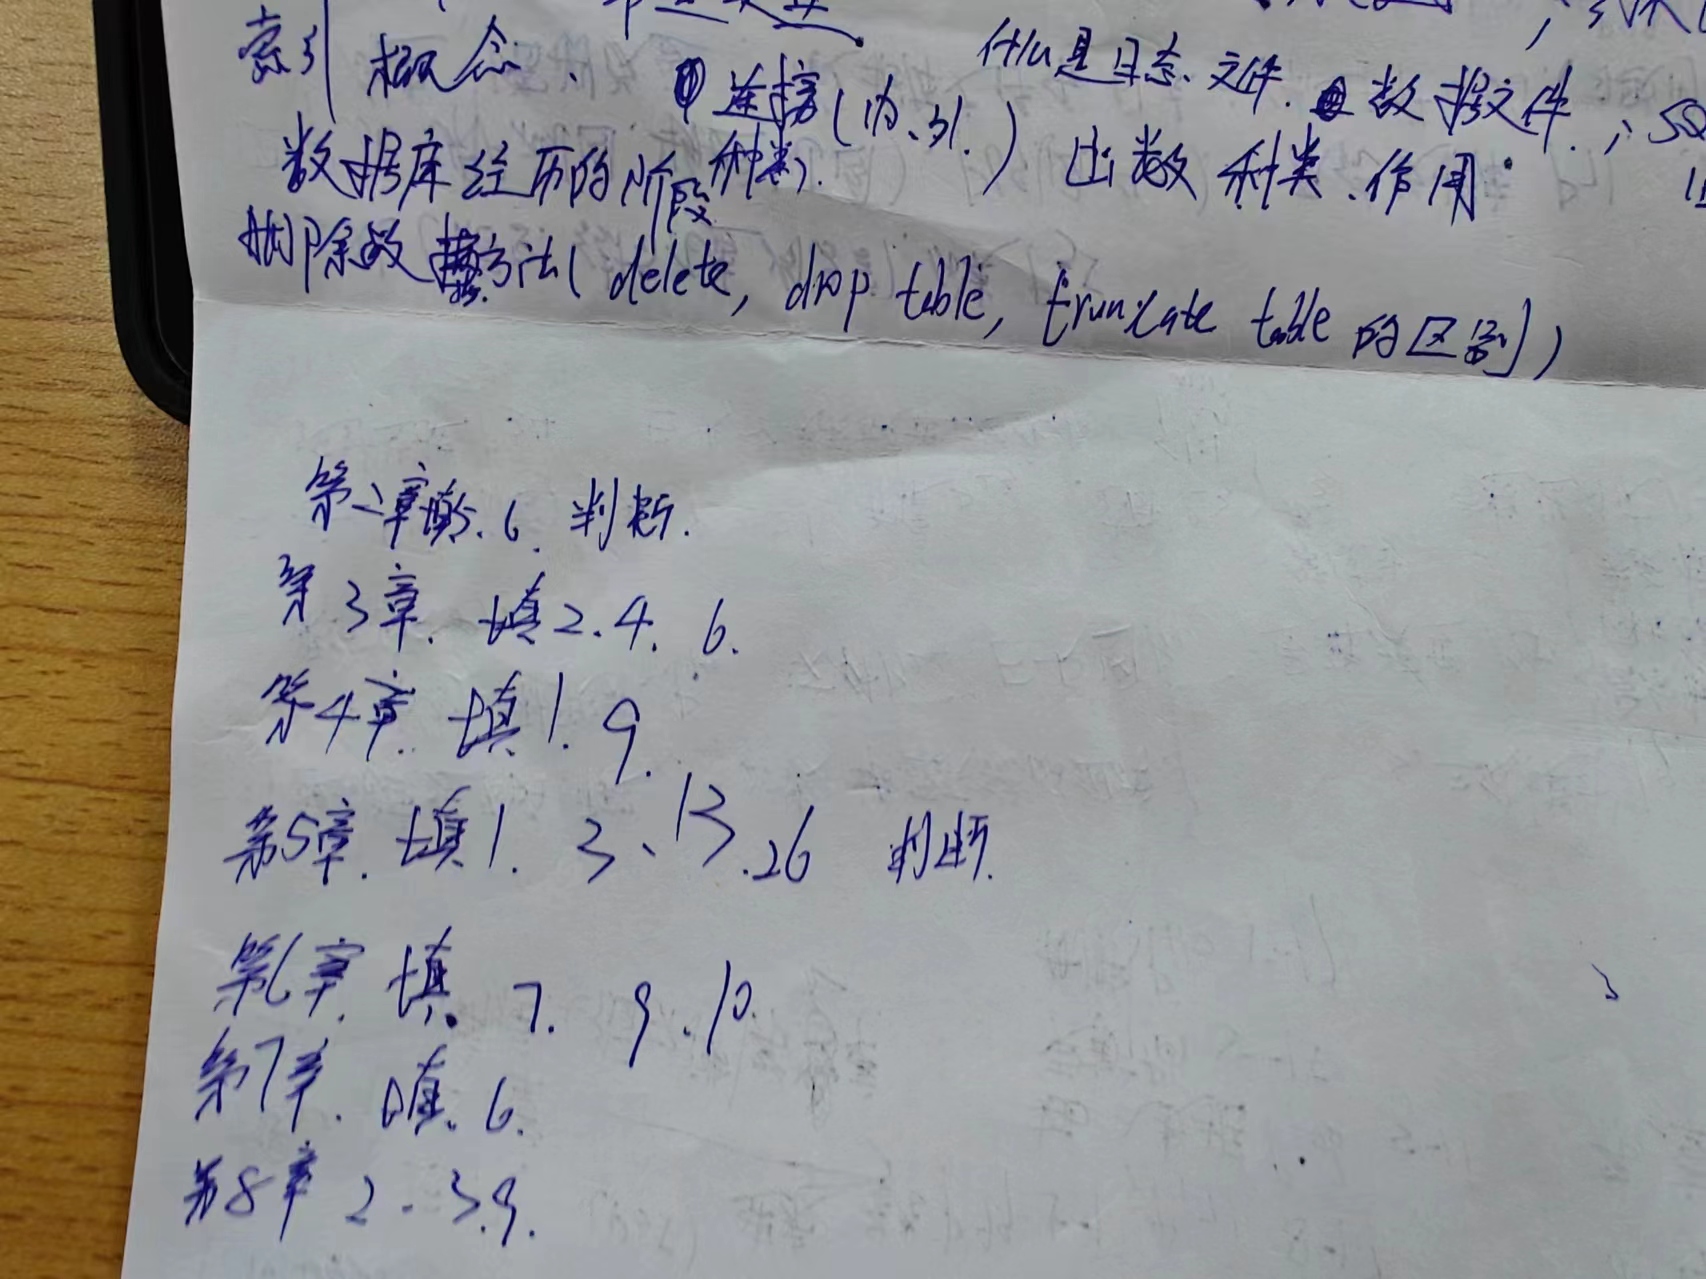 索引 概念、 什么是日志、文件、数据文件；
连接（内、外.） 函数 种类、作用
数据库经历的阶段 种类
删除数据方法（delete, drop table, truncate table 的区别）
第二章填5. 6. 判断.
第3章. 填2. 4. 6.
第4章. 填1. 9.
第5章. 填1. 3、13.26 判断.
第6章. 填. 7. 9.10.
第7章. 填. 6.
第8章 2. 3.9.